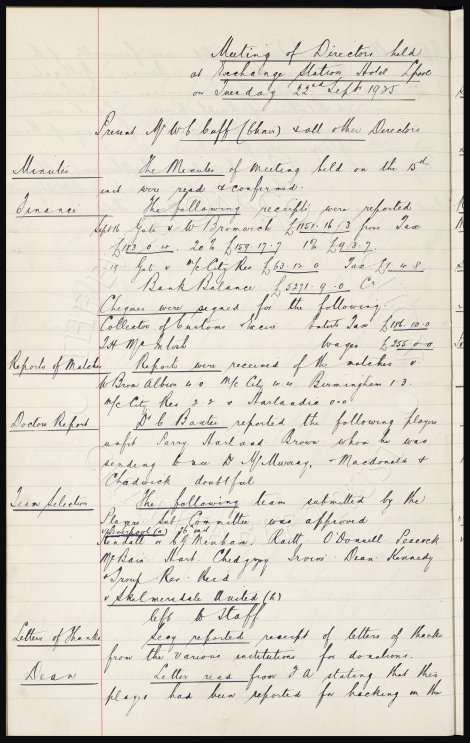 Meeting of Directors held
at Exchange Station Hotel Lpool
on Tuesday 22nd Sept 1925
Present Mr W. C. Cuff (Chair) & all other Directors
Minutes The Minutes of meeting held on the 15th
inst were read & confirmed.
Finance The following receipts were reported
Sept 16 Gate v W Bromwich £1151.16.3 from Tax
£183.0.4. 20% £159.17.7 1% £9.3.7
" 19 Gate v M/c City Res £63.12.0 Tax £1.4.8
Bank Balance £5271.9.0 Cr
Cheques were signed for the following.
Collector of Customs & Excise Entert Tax £186.10.0
T.H. McIntosh Wages £255.0.0
Reports of Matches Reports were received of the matches v.
W Brom Albion 4.0 M/c City 4.4 Birmingham 1.3.
M/c City Res 2.2 v Harlandic 0.0
Doctors Report Dr C. Baxter reported the following players
unfit Parry Harland Brown whom he was
sending to see Dr McMurray, & Macdonald &
Chadwick doubtful
Team Selection The following team submitted by the
Players Sub Committee was approved
v Liverpool (a) 26th inst
Kendall or Menham, Raitt, O'Donnell Peacock
McBain Hart Chedgzoy Irvine Dean Kennedy
& Troup Res. Reed
v Skelmersdale United (h)
left to Staff
Letters of Thanks Secy reported receipt of letters of thanks
from the various institutions for donations.
Dean Letter read from F A stating that this
player had been reported for hacking in the